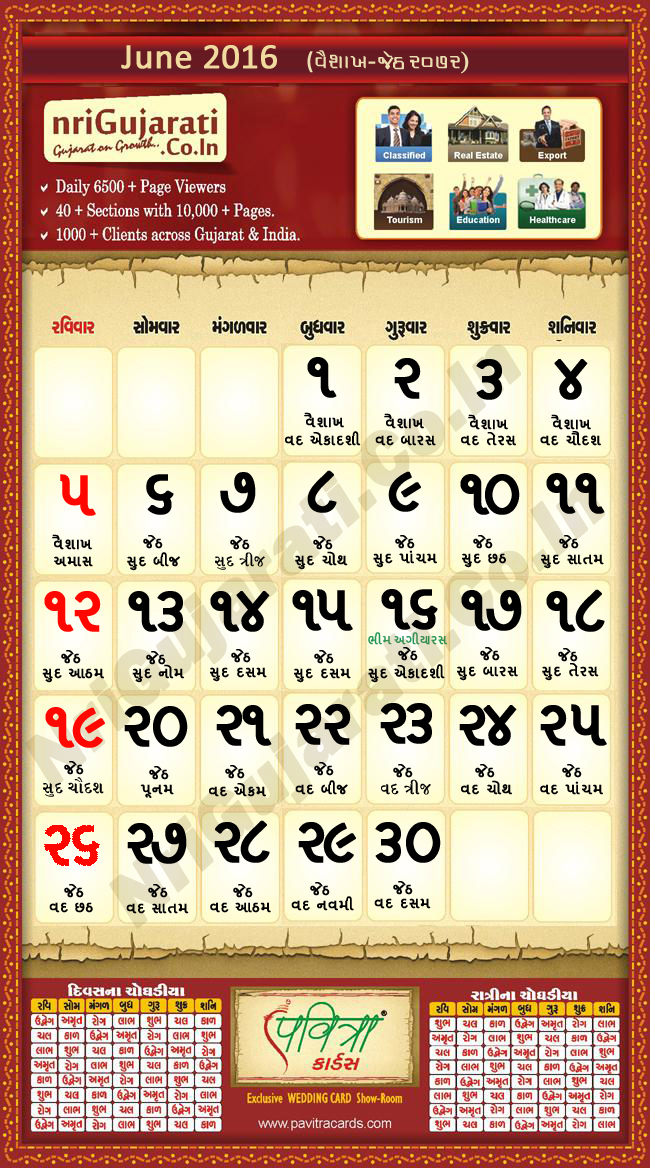 June 2016 (વૈશાખ-જેઠ ૨૦૭૨)
nriGujarati
Gujarat on Growth..
.Co.In
Daily 6500 + Page Viewers
40 + Sections with 10,000 + Pages.
1000 + Clients across Gujarat & India.
Classified Real Estate Export
Tourism Education Healthcare
રવિવાર સોમવાર મંગળવાર બુધવાર ગુરૂવાર શુક્રવાર શનિવાર
૧ ૨ ૩ ૪
વૈશાખ વૈશાખ વૈશાખ વૈશાખ
વદ એકાદશી વદ બારસ વદ તેરસ વદ ચૌદશ
૫ ૬ ૭ ૮ ૯ ૧૦ ૧૧
વૈશાખ જેઠ જેઠ જેઠ જેઠ જેઠ જેઠ
અમાસ સુદ બીજ સુદ ત્રીજ સુદ ચોથ સુદ પાંચમ સુદ છઠ સુદ સાતમ
૧૨ ૧૩ ૧૪ ૧૫ ૧૬ ૧૭ ૧૮
ભીમ અગીયારસ
જેઠ જેઠ જેઠ જેઠ જેઠ જેઠ જેઠ
સુદ આઠમ સુદ નોમ સુદ દસમ સુદ દસમ સુદ એકાદશી સુદ બારસ સુદ તેરસ
૧૯ ૨૦ ૨૧ ૨૨ ૨૩ ૨૪ ૨૫
જેઠ જેઠ જેઠ જેઠ જેઠ જેઠ જેઠ
સુદ ચૌદશ પૂનમ વદ એકમ વદ બીજ વદ ત્રીજ વદ ચોથ વદ પાંચમ
૨૬ ૨૭ ૨૮ ૨૯ ૩૦
જેઠ જેઠ જેઠ જેઠ જેઠ
વદ છઠ વદ સાતમ વદ આઠમ વદ નવમી વદ દસમ
NriGujarati.co.In
NriGujarati.co.In
દિવસના ચોઘડીયા
રવિ સોમ મંગળ બુધ ગુરૂ શુક્ર શનિ
ઉદ્વેગ અમૃત રોગ લાભ શુભ ચલ કાળ
ચલ કાળ ઉદ્વેગ અમૃત રોગ લાભ શુભ
લાભ શુભ ચલ કાળ ઉદ્વેગ અમૃત રોગ
અમૃત રોગ લાભ શુભ ચલ કાળ ઉદ્વેગ
કાળ ઉદ્વેગ અમૃત રોગ લાભ શુભ ચલ
શુભ ચલ કાળ ઉદ્વેગ અમૃત રોગ લાભ
રોગ લાભ શુભ ચલ કાળ ઉદ્વેગ અમૃત
ઉદ્વેગ અમૃત રોગ લાભ શુભ ચલ કાળ
પવિત્રા®
કાર્ડસ
Exclusive WEDDING CARD Show-Room
www.pavitracards.com
રાત્રીના ચોઘડીયા
રવિ સોમ મંગળ બુધ ગુરૂ શુક્ર શનિ
શુભ ચલ કાળ ઉદ્વેગ અમૃત રોગ લાભ
અમૃત રોગ લાભ શુભ ચલ કાળ ઉદ્વેગ
ચલ કાળ ઉદ્વેગ અમૃત રોગ લાભ શુભ
રોગ લાભ શુભ ચલ કાળ ઉદ્વેગ અમૃત
કાળ ઉદ્વેગ અમૃત રોગ લાભ શુભ ચલ
લાભ શુભ ચલ કાળ ઉદ્વેગ અમૃત રોગ
ઉદ્વેગ અમૃત રોગ લાભ શુભ ચલ કાળ
શુભ ચલ કાળ ઉદ્વેગ અમૃત રોગ લાભ